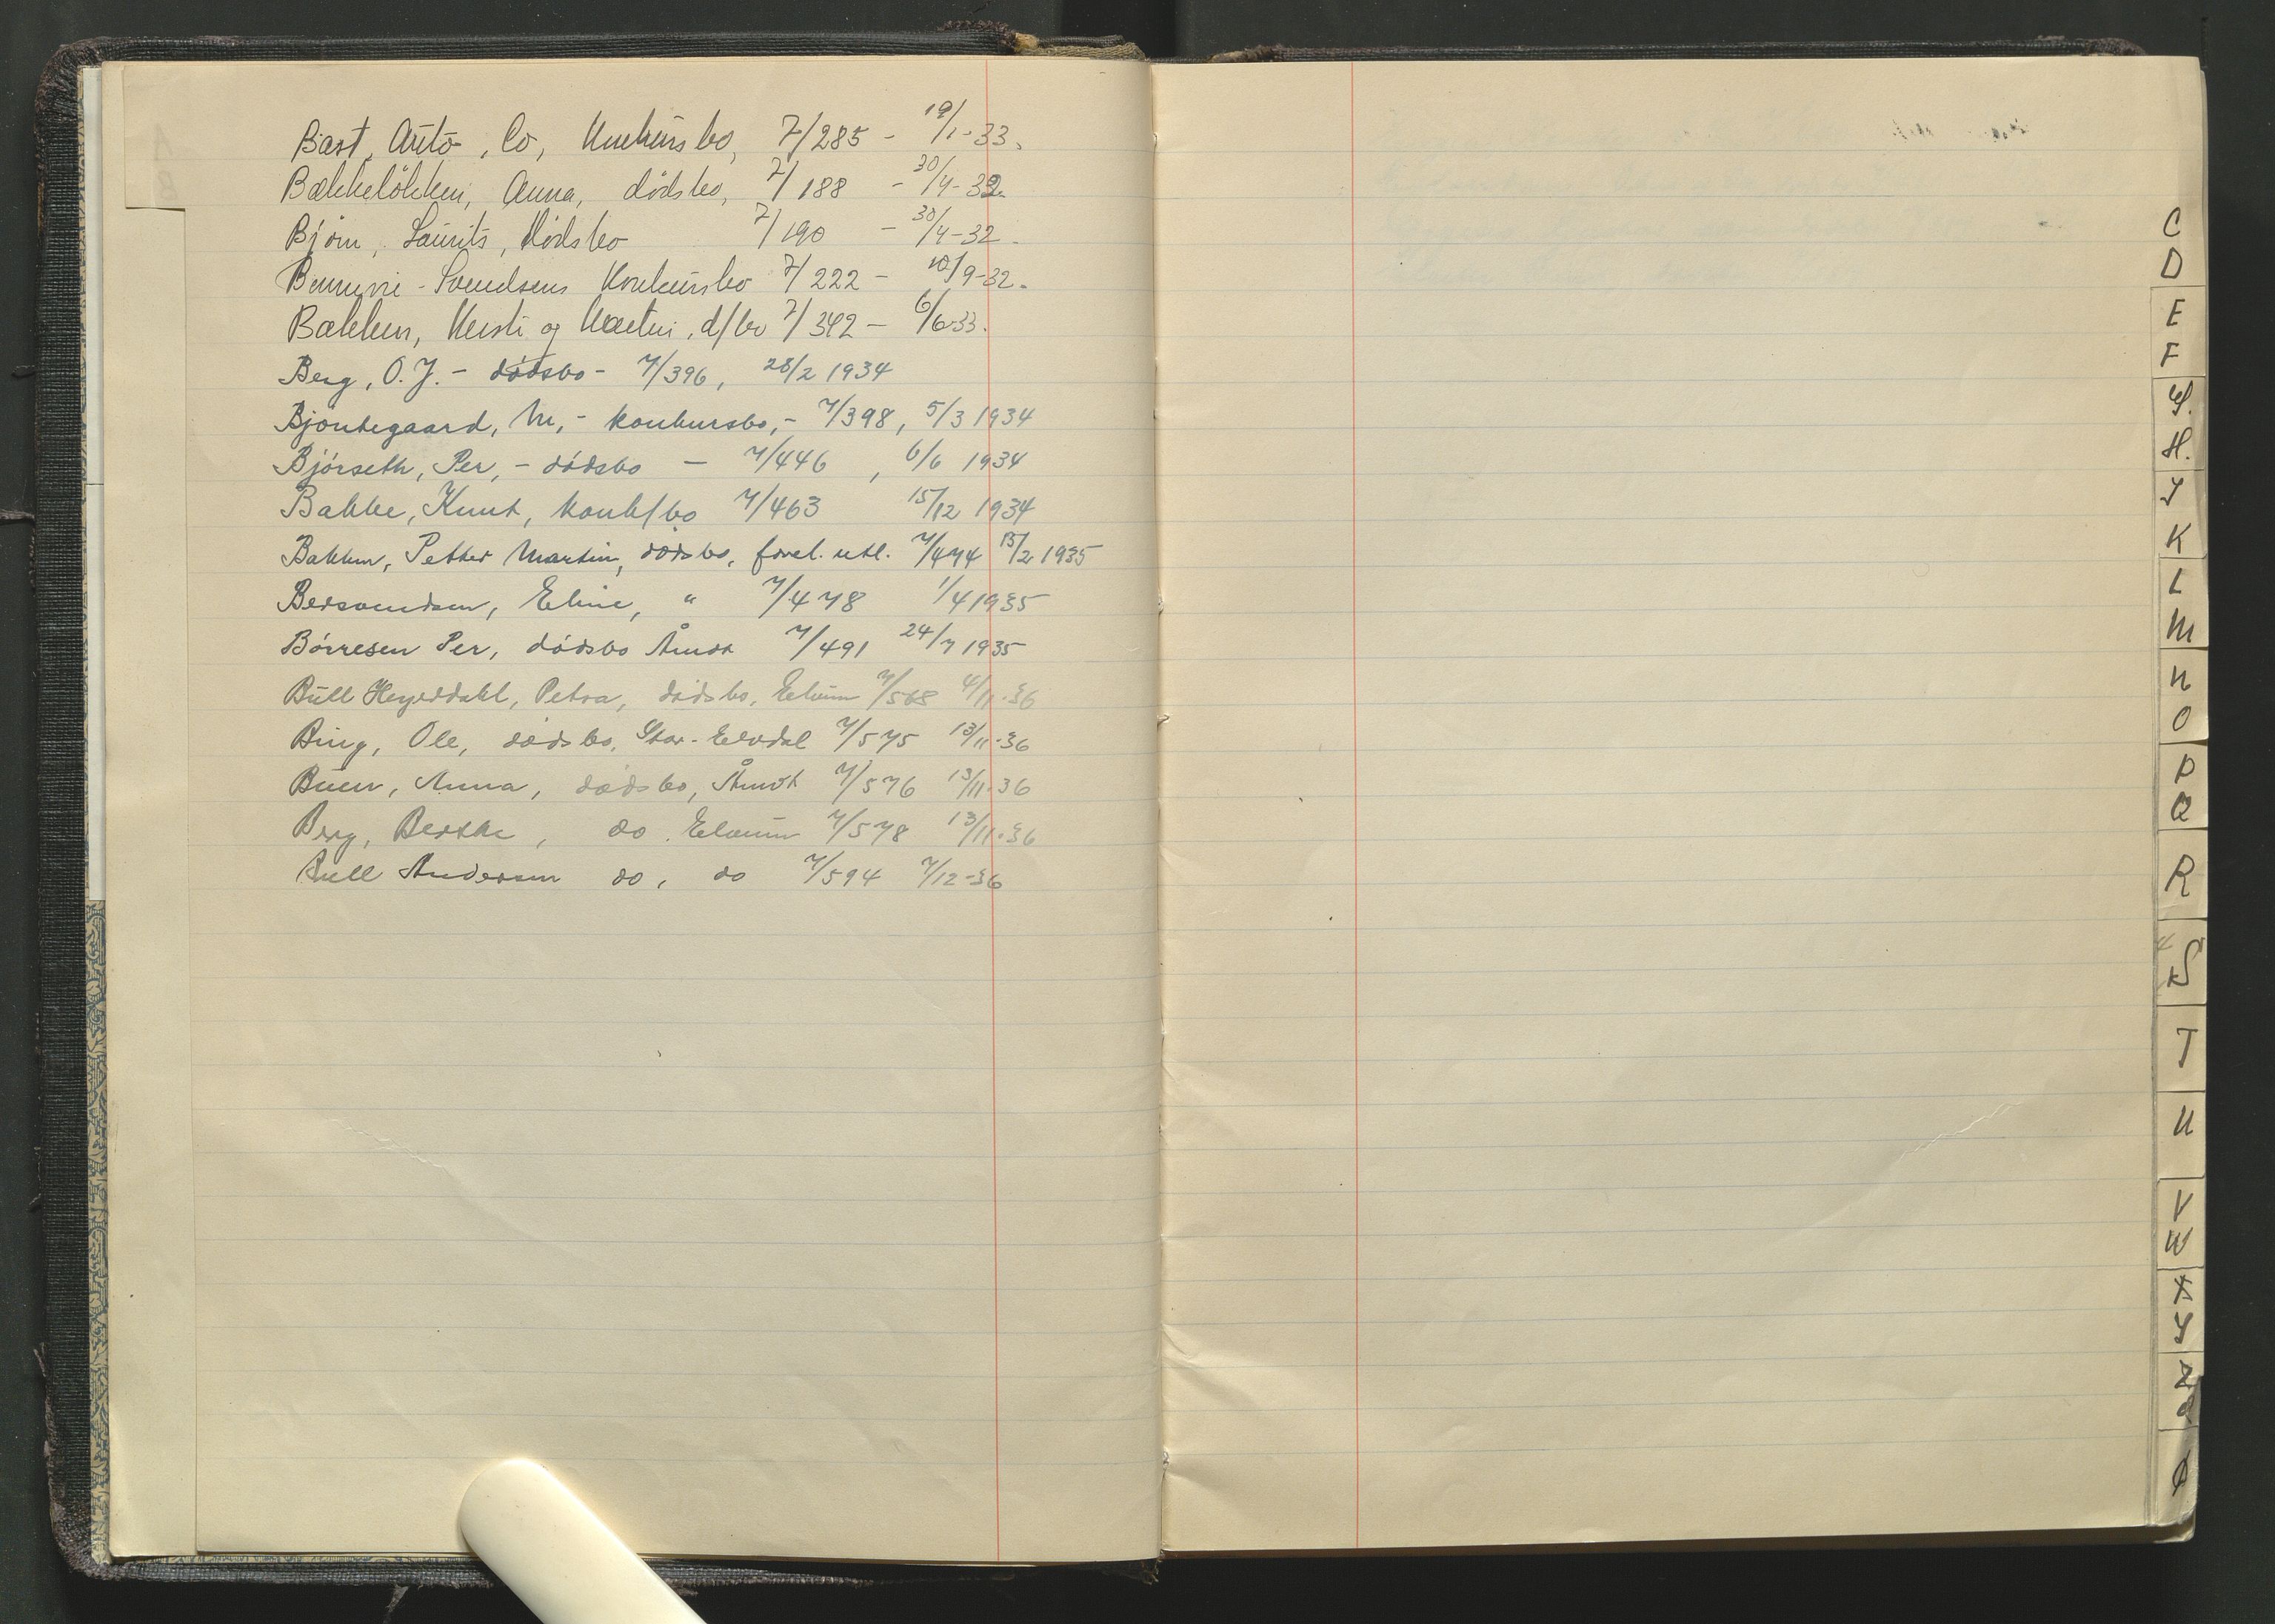 Bast, Auto, Co, Konkursbo, 7/285 - 19/1-33.
Bækkeløkken, Anna, dödsbo, 7/188 - 30/4-32.
Björn, Laurits, Dödsbo 7/190 - 30/4-32.
Svendsens Konkursbo 7/222 - 10/9-32.
Bækken, Kersti og Martin, d/bo 7/342 - 6/6-33.
Berg, O.J. - dödsbo - 7/396, 28/2 1934
Bjöntegaard, M, - konkursbo, - 7/398, 5/3 1934
Björseth, Per, - dödsbo - 7/446, 6/6 1934
Bakke, Knut, konk/bo 7/463 15/12 1934
Bakken, Petter Martin, dödsbo, forel. utl. 7/474 15/2 1935
Bersvendsen, Eline, " 7/478 1/4 1935
Börresen Per, dödsbo Åmot 7/491 24/7 1935
Büll Heyerdahl, Petra, dödsbo, Elverum 7/568 4/11-36
Bing, Ole, dödsbo, Stor-Elvdal 7/575 13/11-36
Buen, Anna, dödsbo, Åmot 7/576 13/11-36
Berg, Berthe, do Elverum 7/578 13/11-36
Bull Andersen do, do 7/594 7/12-36
C
D
E
F
G.
H.
J
K
L
M
N
O
P
Q
R
S
T
U
V
W
X
Y
Z
Ø